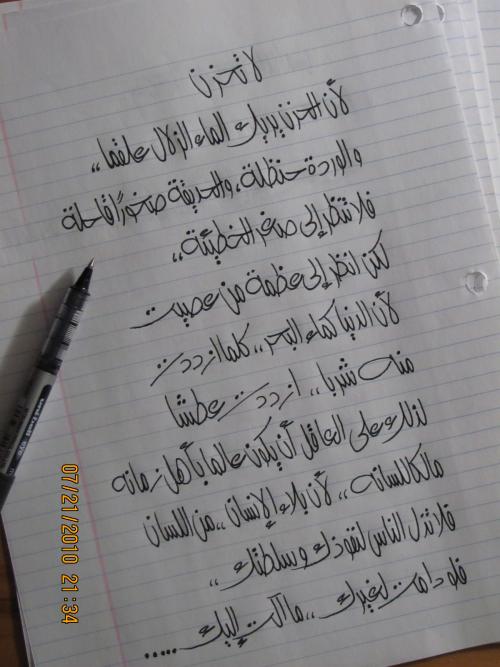 لا تحزن
لأن الحزن يريك الماء الزلال علقما ،،
والوردة حنظلة ، والحديقة صخوراً قاحلة
فلا تنظر إلى صغر الخطيئة ،،
لكن انظر إلى عظمة من عصيت
لأن الدنيا كماء البحر ،، كلما ازددت
منه شربا ،، ازددت عطشا
لذلك على العاقل أن يكون عالما بأهل زمانه
مالكا لسانه ،، لأن بلاء الإنسان ،، من اللسان
فلا تذل الناس لنفوذك وسلطتك ،،
فلو دامت لغيرك ،، ما آلت إليك .....
07/21/2010 21:34